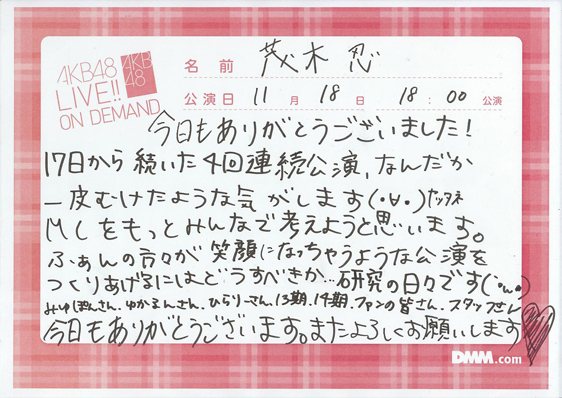 AKB48
LIVE!!
ON DEMAND
AKB
48
名前 茂木 忍
公演日 11月 18日 18:00 公演
今日もありがとうございました!
17日から続いた4回連続公演、なんだか
一皮むけたような気がします(・∀・)
MCをもっとみんなで考えようと思います。
ふぁんの方々が笑顔になっちゃうような公演を
つくりあげるにはどうすべきか…研究の日々です(・ω・)
みゆぽんさん、ゆかるんさん、ひらりーさん、13期、14期、ファンの皆さん、スタッフさん
今日もありがとうございます。またよろしくお願いします
DMM.com